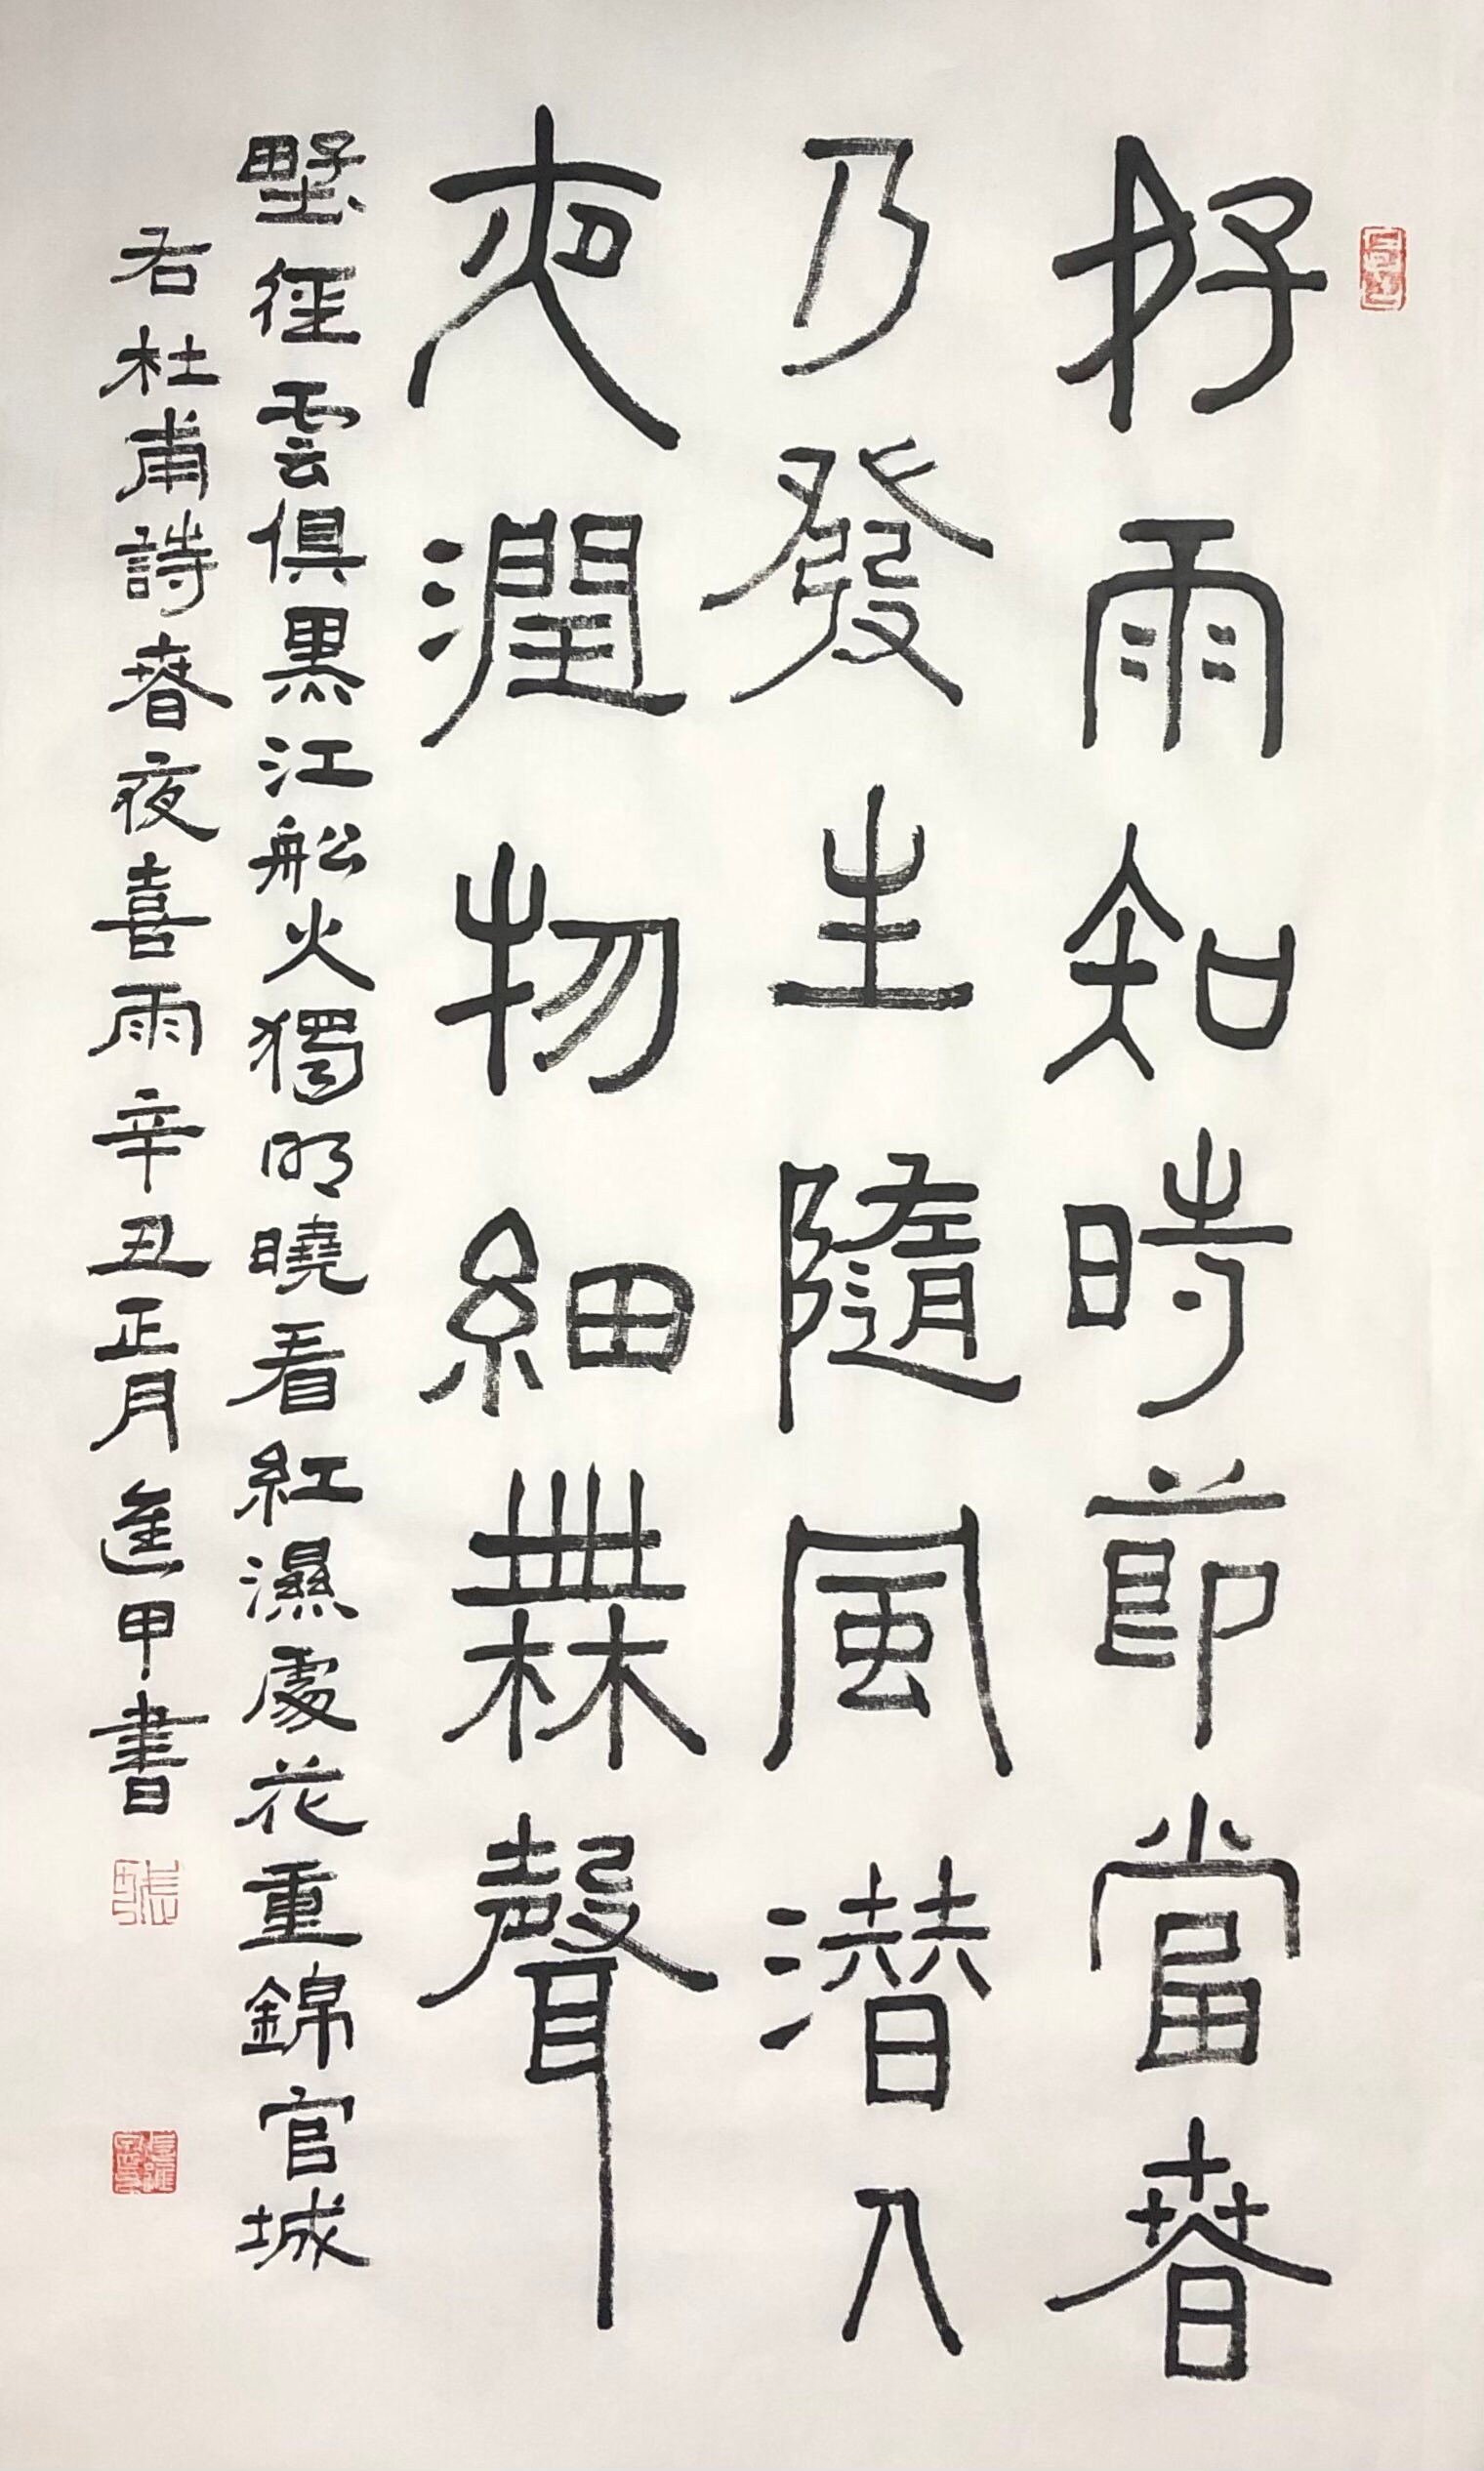 好雨知時節當春
乃發生隨風潛入
夜潤物細無聲
野徑雲俱黑江船火獨明曉看紅濕處花重錦官城
右杜甫詩春夜喜雨辛丑正月進甲書